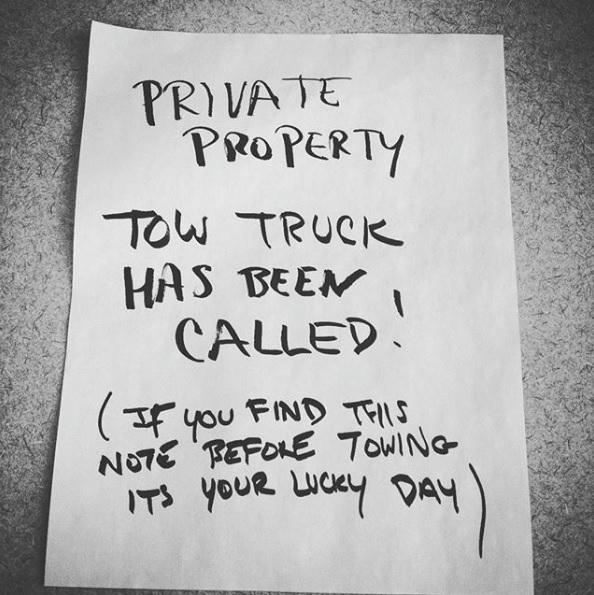 PRIVATE
PROPERTY
TOW TRUCK
HAS BEEN
CALLED!
(IF YOU FIND THIS
NOTE BEFORE TOWING
ITS YOUR LUCKY DAY)